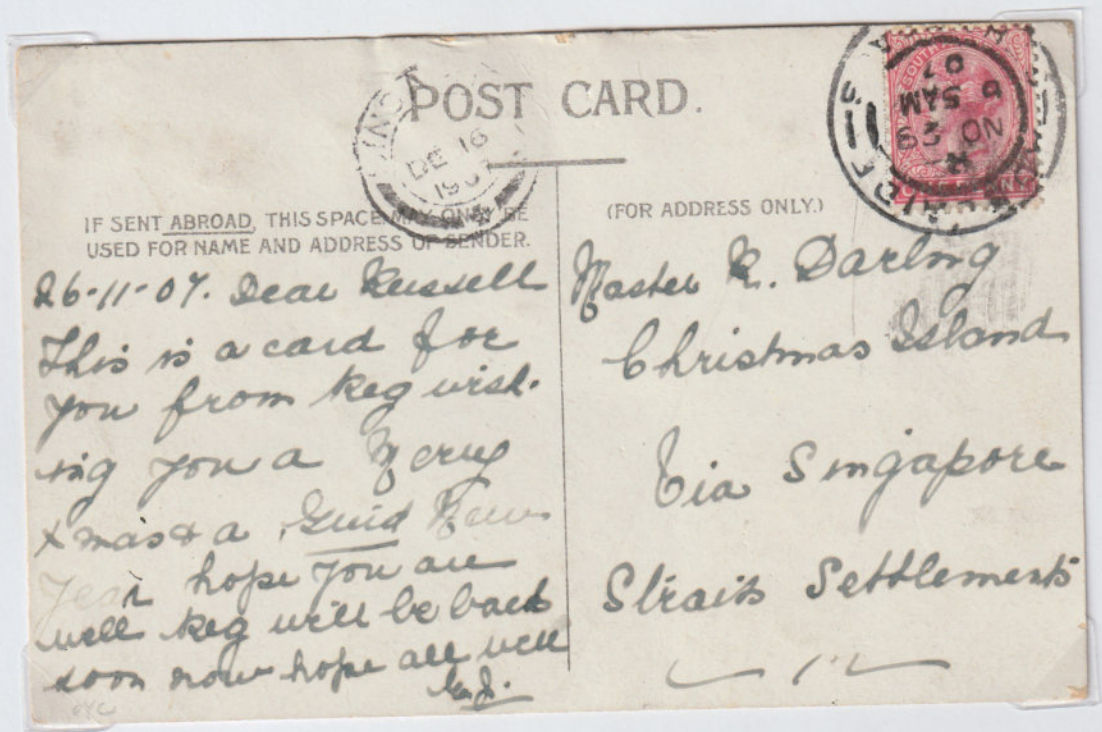 POST CARD.
DE 16
190
SOUTH
NO 29
5 AM
07
IF SENT ABROAD, THIS SPACE MAY ONLY BE
USED FOR NAME AND ADDRESS OF SENDER.
26-11-07. Dear Russell
This is a card for
you from Reg wish-
ing you a Merry
Xmas & a Guid New
Year hope you are
well Reg will be back
soon now hope all well
(FOR ADDRESS ONLY.)
Master R. Darling
Christmas Island
Via Singapore
Straits Settlements